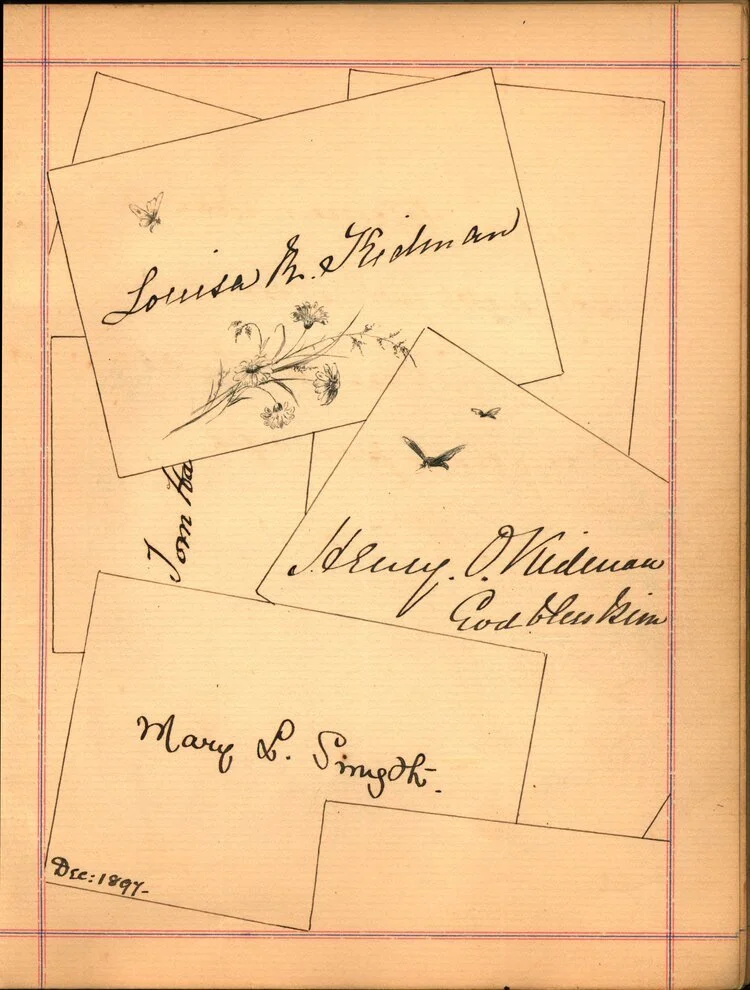 Louisa M. Kidman
Tom Ha
Henry. O. Kidman
God bless him
Mary L. Smyth.
Dec: 1897-